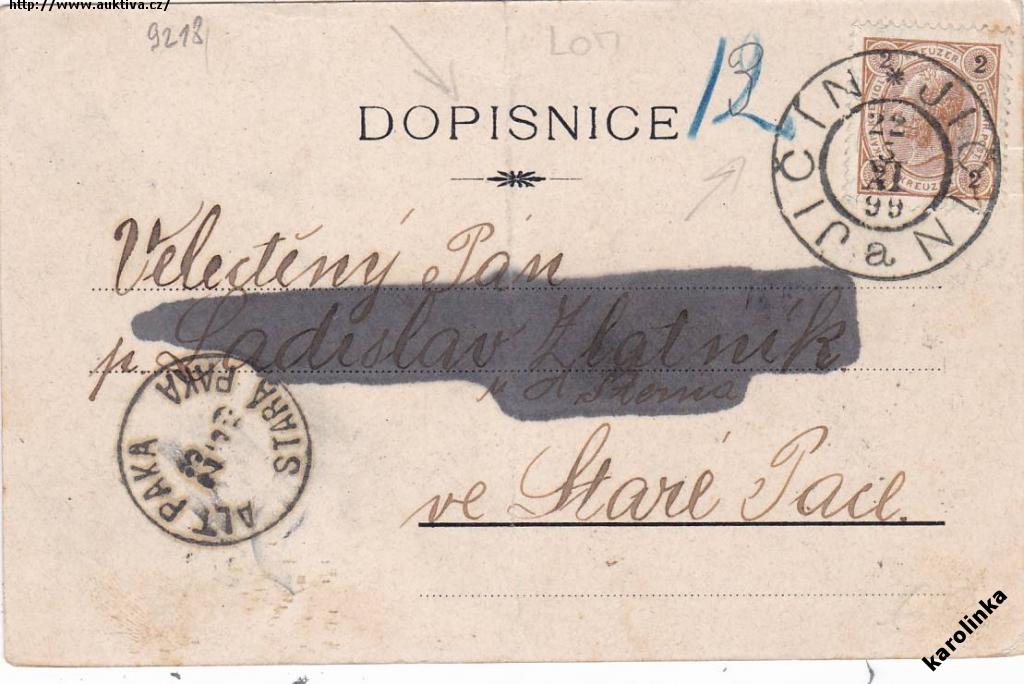 http://www.auktiva.cz/
9218
LOT
DOPISNICE
12
3
2 KREUZER 2
2 KREUZER 2
JIČIN * JIČIN a
22
XI
99
Velectěný Pán
p. Ladislav Zlatník
ve Staré Pace.
ALT PAKA
STARÁ PAKA
23
karolinka